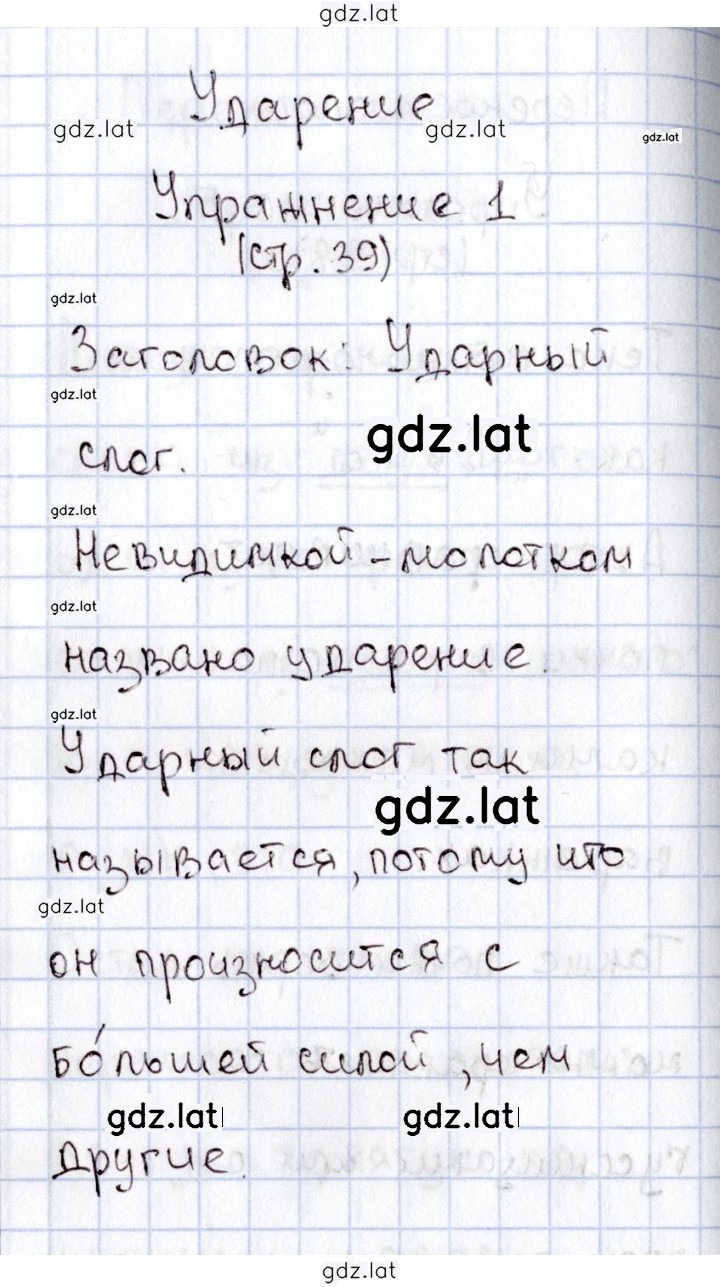 gdz.lat
Ударение
gdz.lat gdz.lat gdz.lat
Упражнение 1
(стр. 39)
gdz.lat
Заголовок: Ударный
gdz.lat
gdz.lat
слог.
gdz.lat
Невидимкой-молотком
gdz.lat
названо ударение.
gdz.lat
Ударный слог так
gdz.lat
называется, потому что
gdz.lat
он произносится с
бо́льшей силой, чем
gdz.lat gdz.lat
другие.
gdz.lat